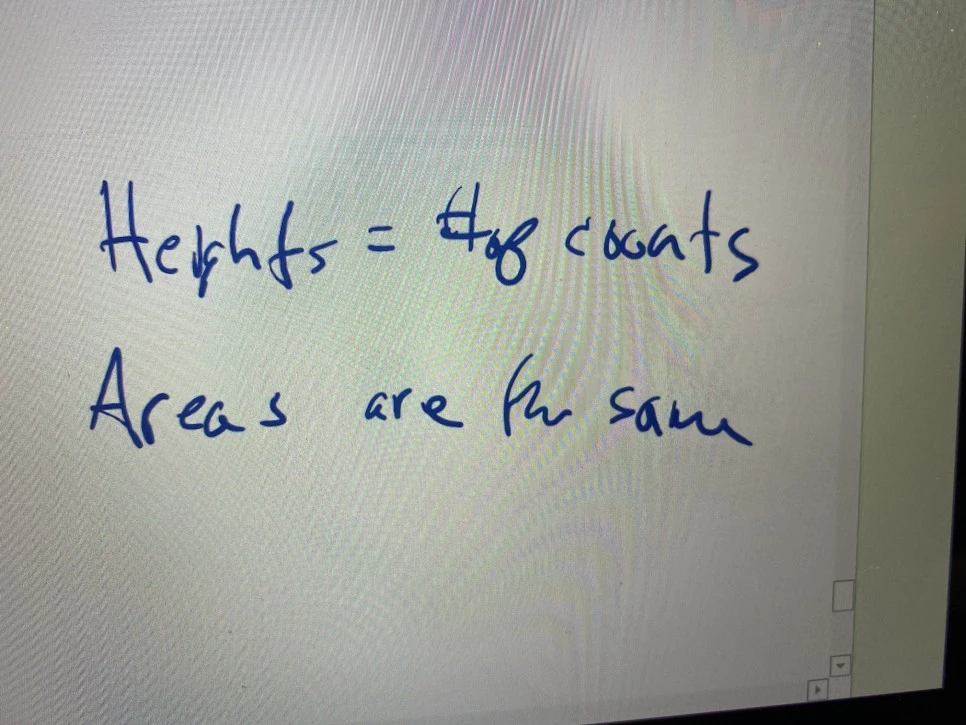 Heights = # of counts
Areas are the same